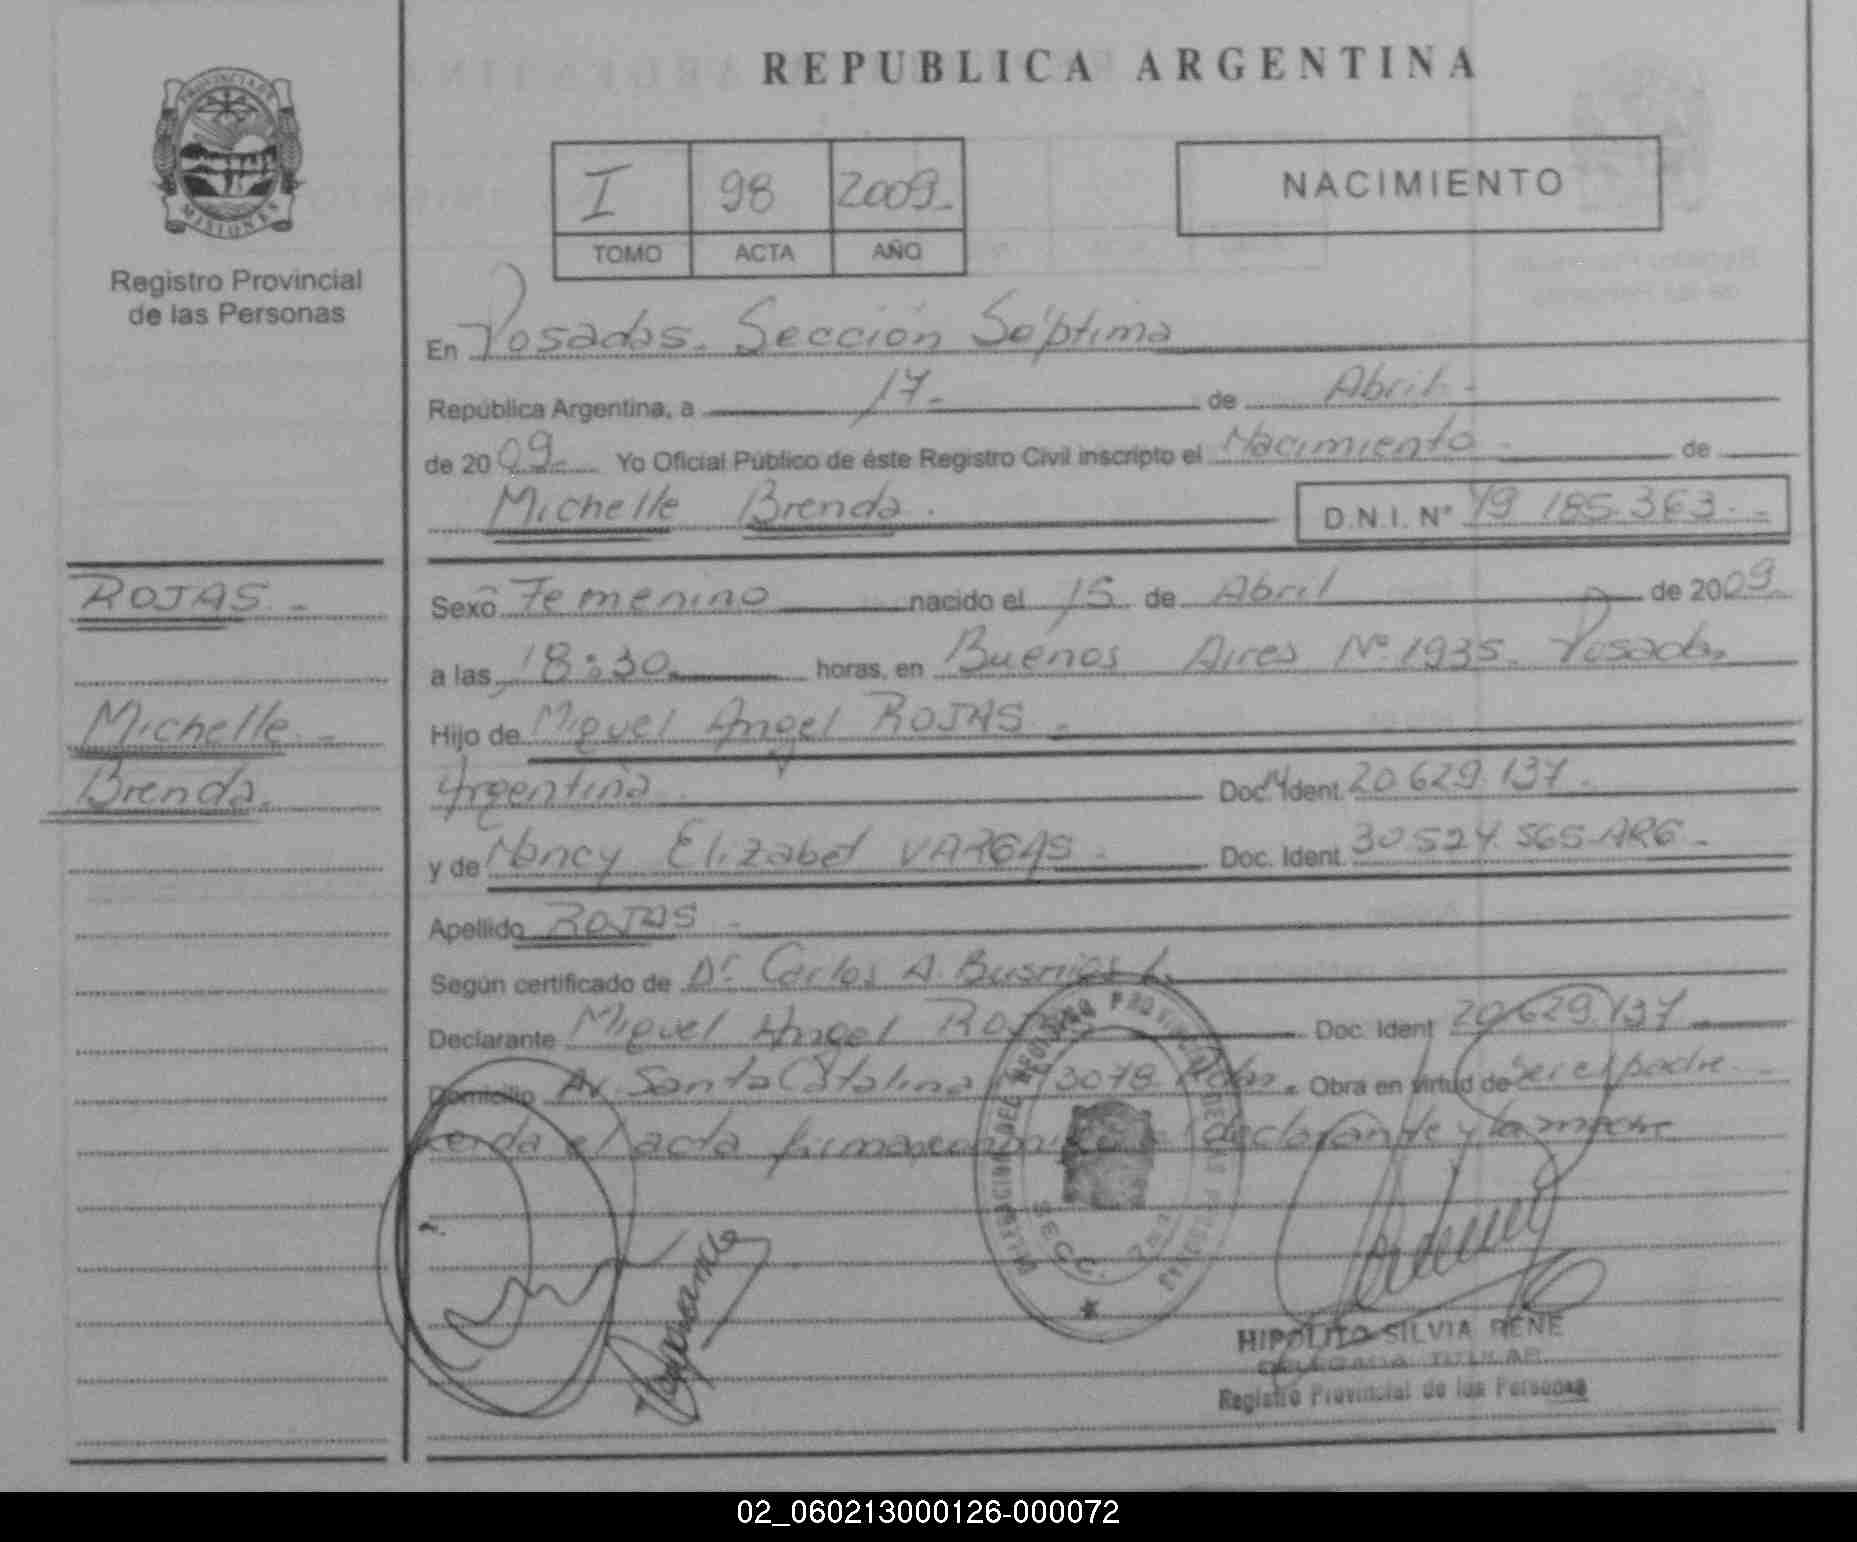 REPUBLICA ARGENTINA
PROVINCIA DE
MISIONES
Registro Provincial
de las Personas
I 98 2009.
TOMO ACTA AÑO
NACIMIENTO
En Posadas. Sección Séptima
República Argentina, a 17. de Abril
de 2009. Yo Oficial Público de éste Registro Civil inscripto el Nacimiento de
Michelle Brenda. D.N.I. Nº 49 185.363.
ROJAS
Michelle
Brenda.
Sexo Femenino nacido el 15 de Abril de 2009.
a las 18:30 horas, en Buenos Aires Nº 1935. Posadas
Hijo de Miguel Angel ROJAS
Argentina Doc. Ident. 20.629.137.
y de Nancy Elizabet VARGAS Doc. Ident. 30.524.565-ARG-
Apellido ROJAS
Según certificado de Dr. Carlos A.
Declarante Miguel Angel Rojas Doc. Ident. 20.629.137
Domicilio Av. Santa Catalina 3078 Obra en virtud de ser el padre
el acta declarante y la madre
SECC.
HIPOLITO SILVIA RENE
DELEGADA TITULAR
Registro Provincial de las Personas
02_060213000126-000072